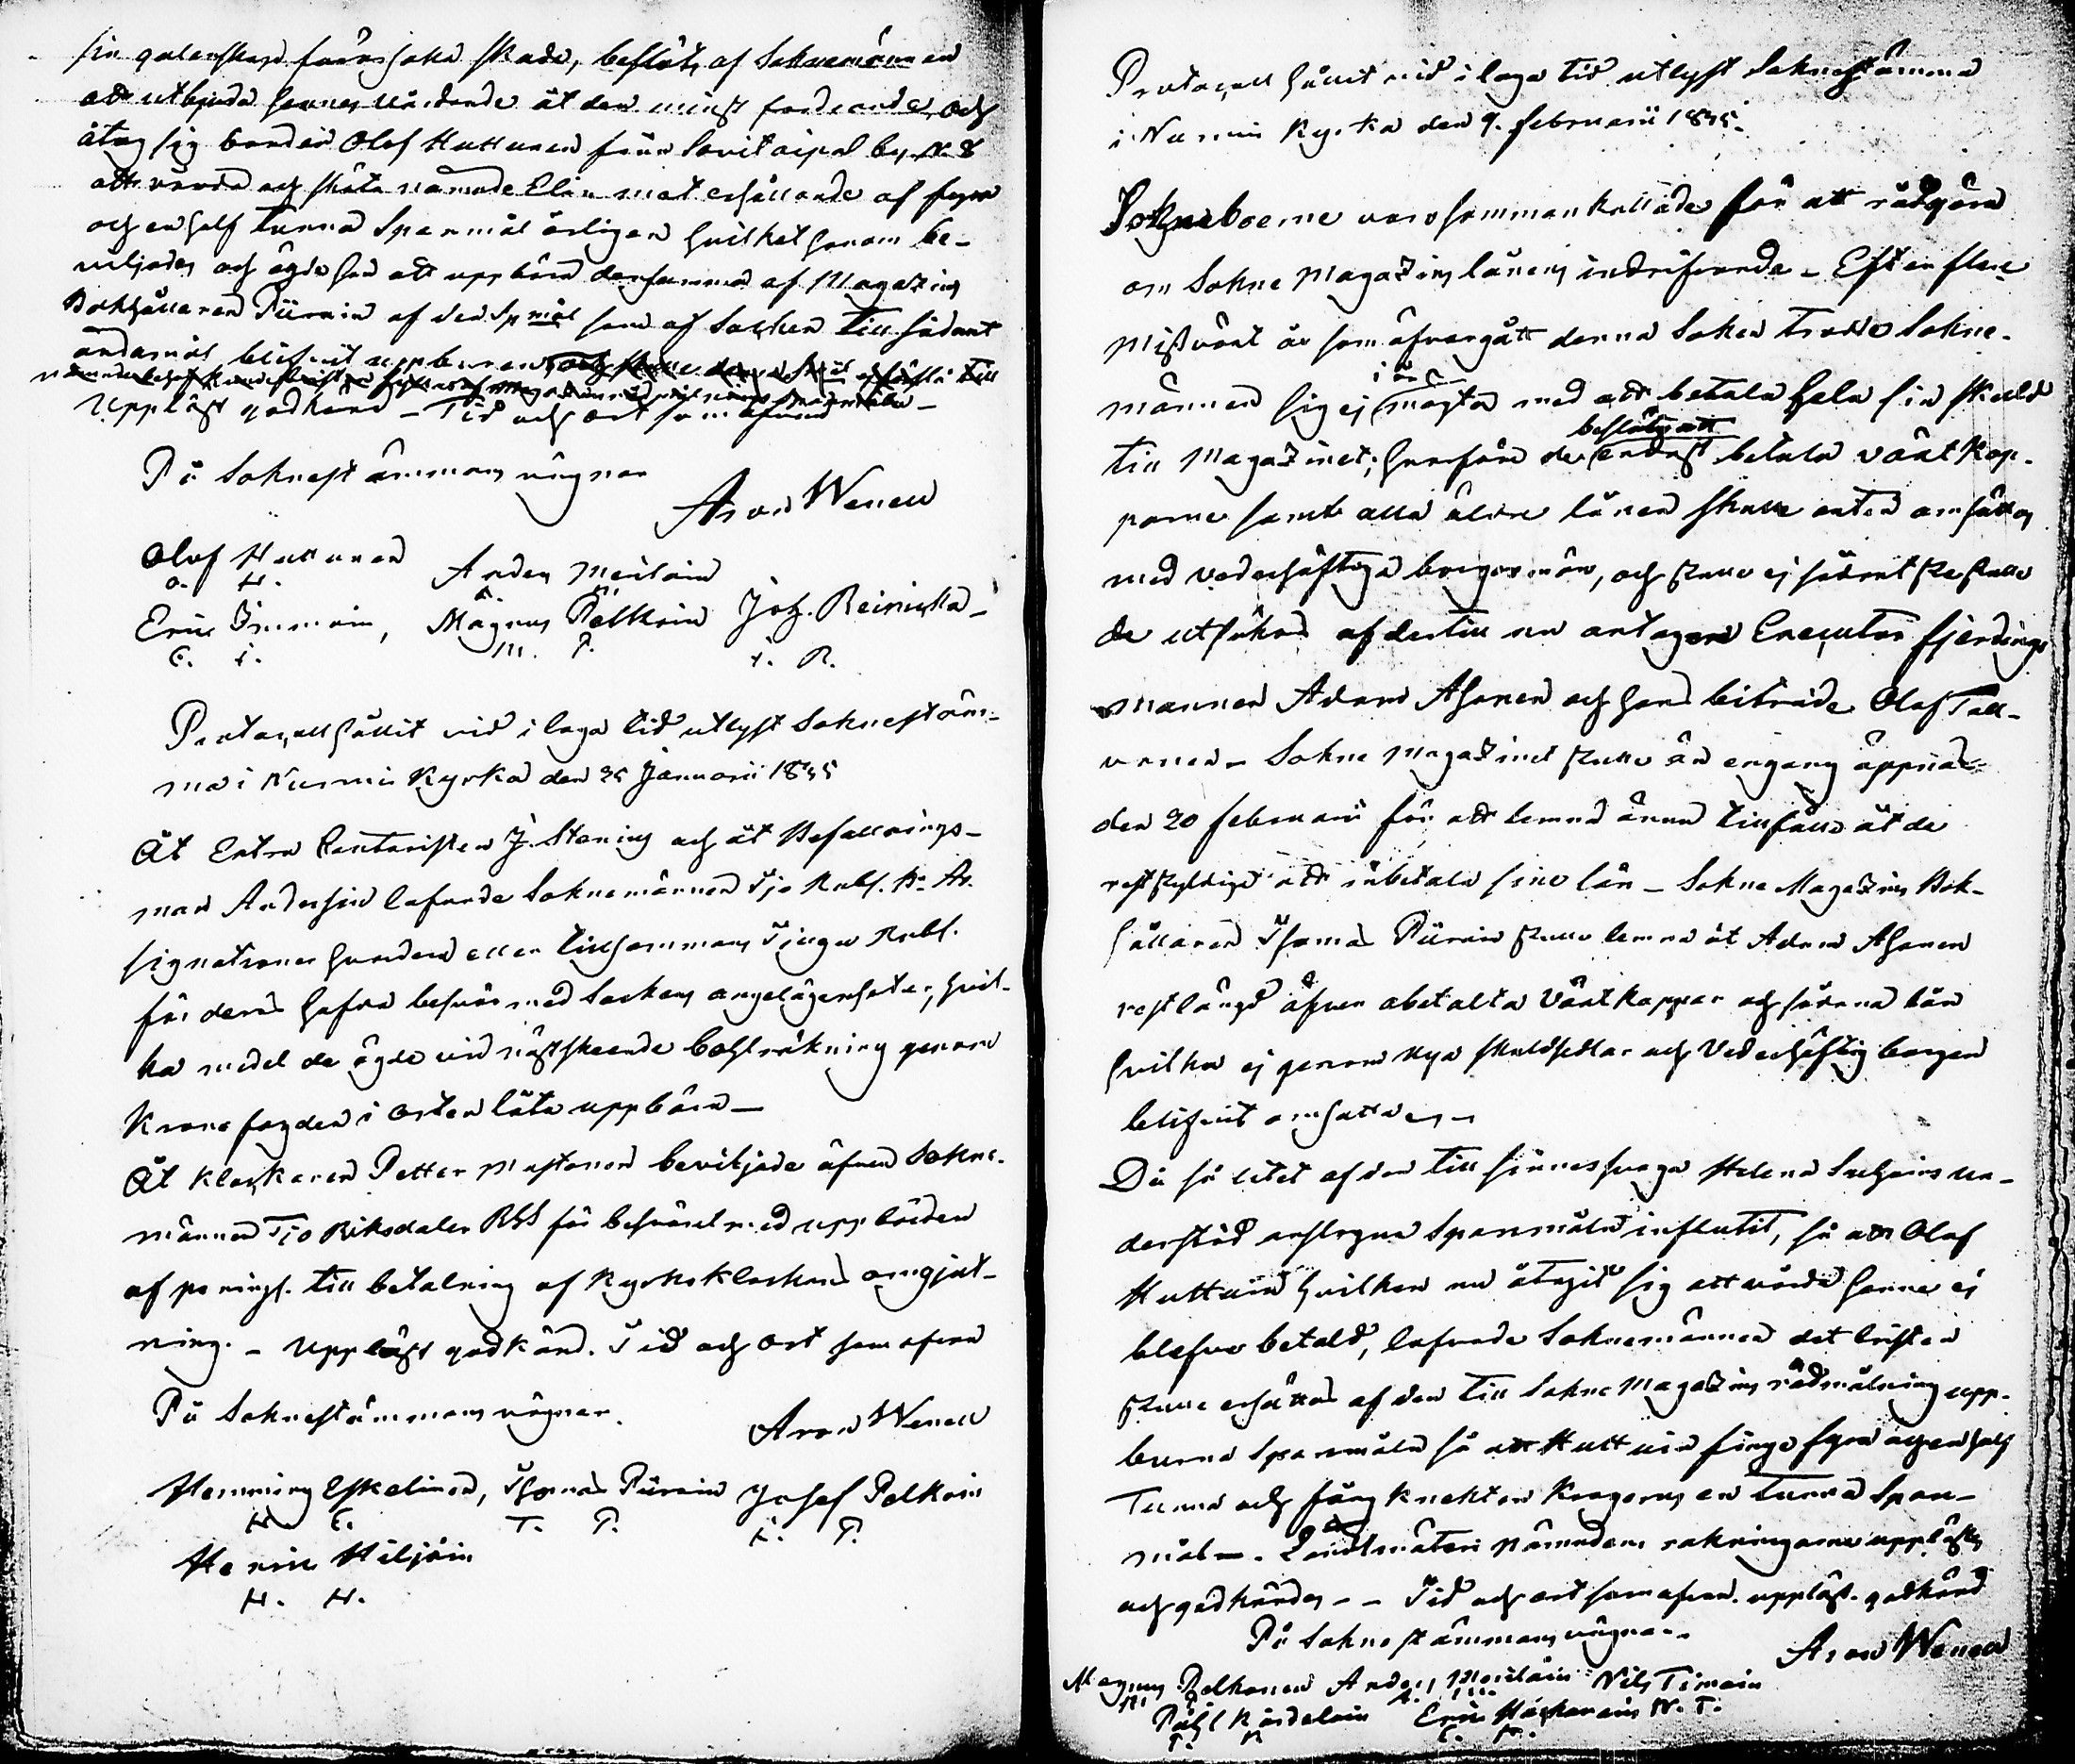 sin galenskap förorsaka skada, beslöts af Soknemännen
att utbjuda hennes vårdande åt den minst fordrande, och
åtog sig bonden Olof Huttunen från Savikaipal by N 8
att vårda och sköta nämnde Elin mot erhållande af fyra
och en half Tunna Spanmål årligen hvilket honom be-
viljades och ägde han att uppbära densamma af Magazins
Bokhållaren Piirain af den Spmål som af Socknen till sådant
ändamål blifvit uppburen, och skulle denna
Uppläst godkänd – Tid och ort som ofvan –
På Soknestämmans vägnar
Aron Wenell
Olof Huttunen Anders Meiläin
O. H.
Eric Immoin, Magnus Pelkoin Joh. Reinicka –
E. I. M. P. I. R.
Protocoll hållit vid i laga tid utlyst Soknestäm-
ma i Nurmis Kyrka den 25 Januarii 1835
Åt Extra Cantoristen J. Stenius och åt Befallnings-
man Andersin lofvade Soknemännen Tjo Rubl. Bo As-
signationer hvardera eller tillsammans Tjugu Rubl.
för deras hafda besvär med Sockens angelägenheter, hvil-
ka medel de ägde vid nästskeende boksräkning genom
Kronofogden i orten låta uppbära –
Åt Klockaren Petter Mustonen beviljade äfven Sokne-
männen Tjo Riksdaler RGS för besväret med uppbörden
af peningr. till betalning af Kyrkoklockans omgjut-
ning. – Uppläst godkänd. Tid och ort som ofvan
På Soknestämmans vägnar.
Aron Wenell
Henning Eskelinen, Thomas Piirain Josef Pelkoin
H. E. T. P. I. P.
Henric Hiljain
H. H.
Protocoll hållit vid i laga tid utlyst Soknestämma
i Nurmis Kyrka den 9. Februarii 1835.
Sokneboerne voro sammankallade för att rådgöra
om Sokne Magazins lånens indrifvande – Efter flere
Missväxt år som öfvergått denna Soken trodde Sokne-
männen sig ej i år mägta med att betala hela sin skuld
till Magazinet; hvarföre de beslöto att endast betala växt kap-
parne samt alla äldre lånen skulle antin omsättas
med vederhäftiga borgesmän, och skulle ej sådant ske skulle
de utsökas af dertill nu antagen Executor fjerdings
mannen Adam Ahonen och hans biträde Olof Tall-
vanen – Sokne Magazinet skulle än engang öppnas
den 20 Februarii för att lemna ännu tillfälle åt de
restskyldige att inbetala sine lån – Sokne Magazins Bok-
hållaren Thomas Piirain skulle lemna åt Adam Ahonen
restlängd öfver obetalta Växtkappar och sådana lån
hvilka ej genom nya skuldsedlar och Vederhäftig borgen
blifvit omsattes –
Då så litet af den till sinnessvaga Helena Sutjains un-
derstöd anslagna Spanmåln influtit, så att Olof
Huttuin hvilken nu åtagit sig att vårda henne ej
blefve betald, lofvade Soknemännen det bristen
skulle ersättas af den till Sokne Magazins rödmålning upp-
burna Spanmåln så att Huttuin finge fyra och en half
Tunna och fång knekten Krogerus en tunna Span-
mål –. Landtmäteri Nämndens räkningarne upplästes
och godkändes – – Tid och ort som ofvan. uppläst. godkänd
På Soknestämmans vägnar –
Aron Wenell
Magnus Pelkonen Anders Meiläin Nils Timoin
M. P. A. M. N. T.
Påhl Kärdeläin Eric Häckärain
P. K. E. H.